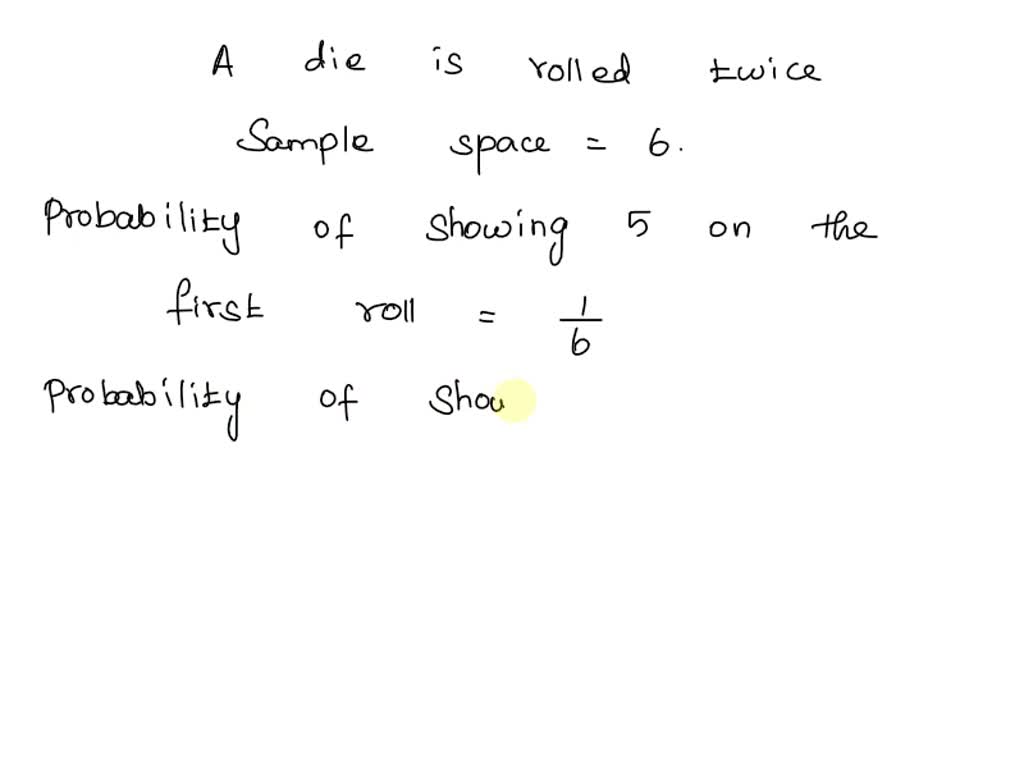 A die is rolled twice
Sample space = 6.
Probability of showing 5 on the
first roll = 1/6
Probability of Shou